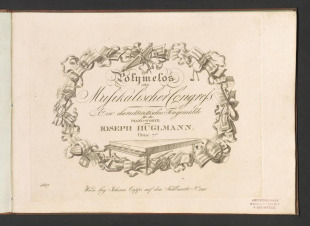 Polymelos
oder
Musikalischer Congress
Eine charakteristische Tongemälde
für das
PIANO-FORTE
von
JOSEPH HUGLMANN.
Wien, bey Johann Cappi, auf dem